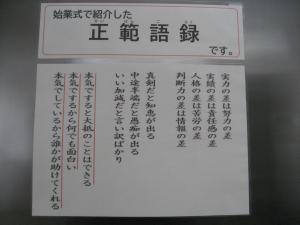 始業式で紹介した
正範語録
です。
実力の差は努力の差
実績の差は責任感の差
人格の差は苦労の差
判断力の差は情報の差
真剣だと知恵が出る
中途半端だと愚痴が出る
いい加減だと言い訳ばかり
本気ですると大抵のことはできる
本気でするから何でも面白い
本気でしているから誰かが助けてくれる